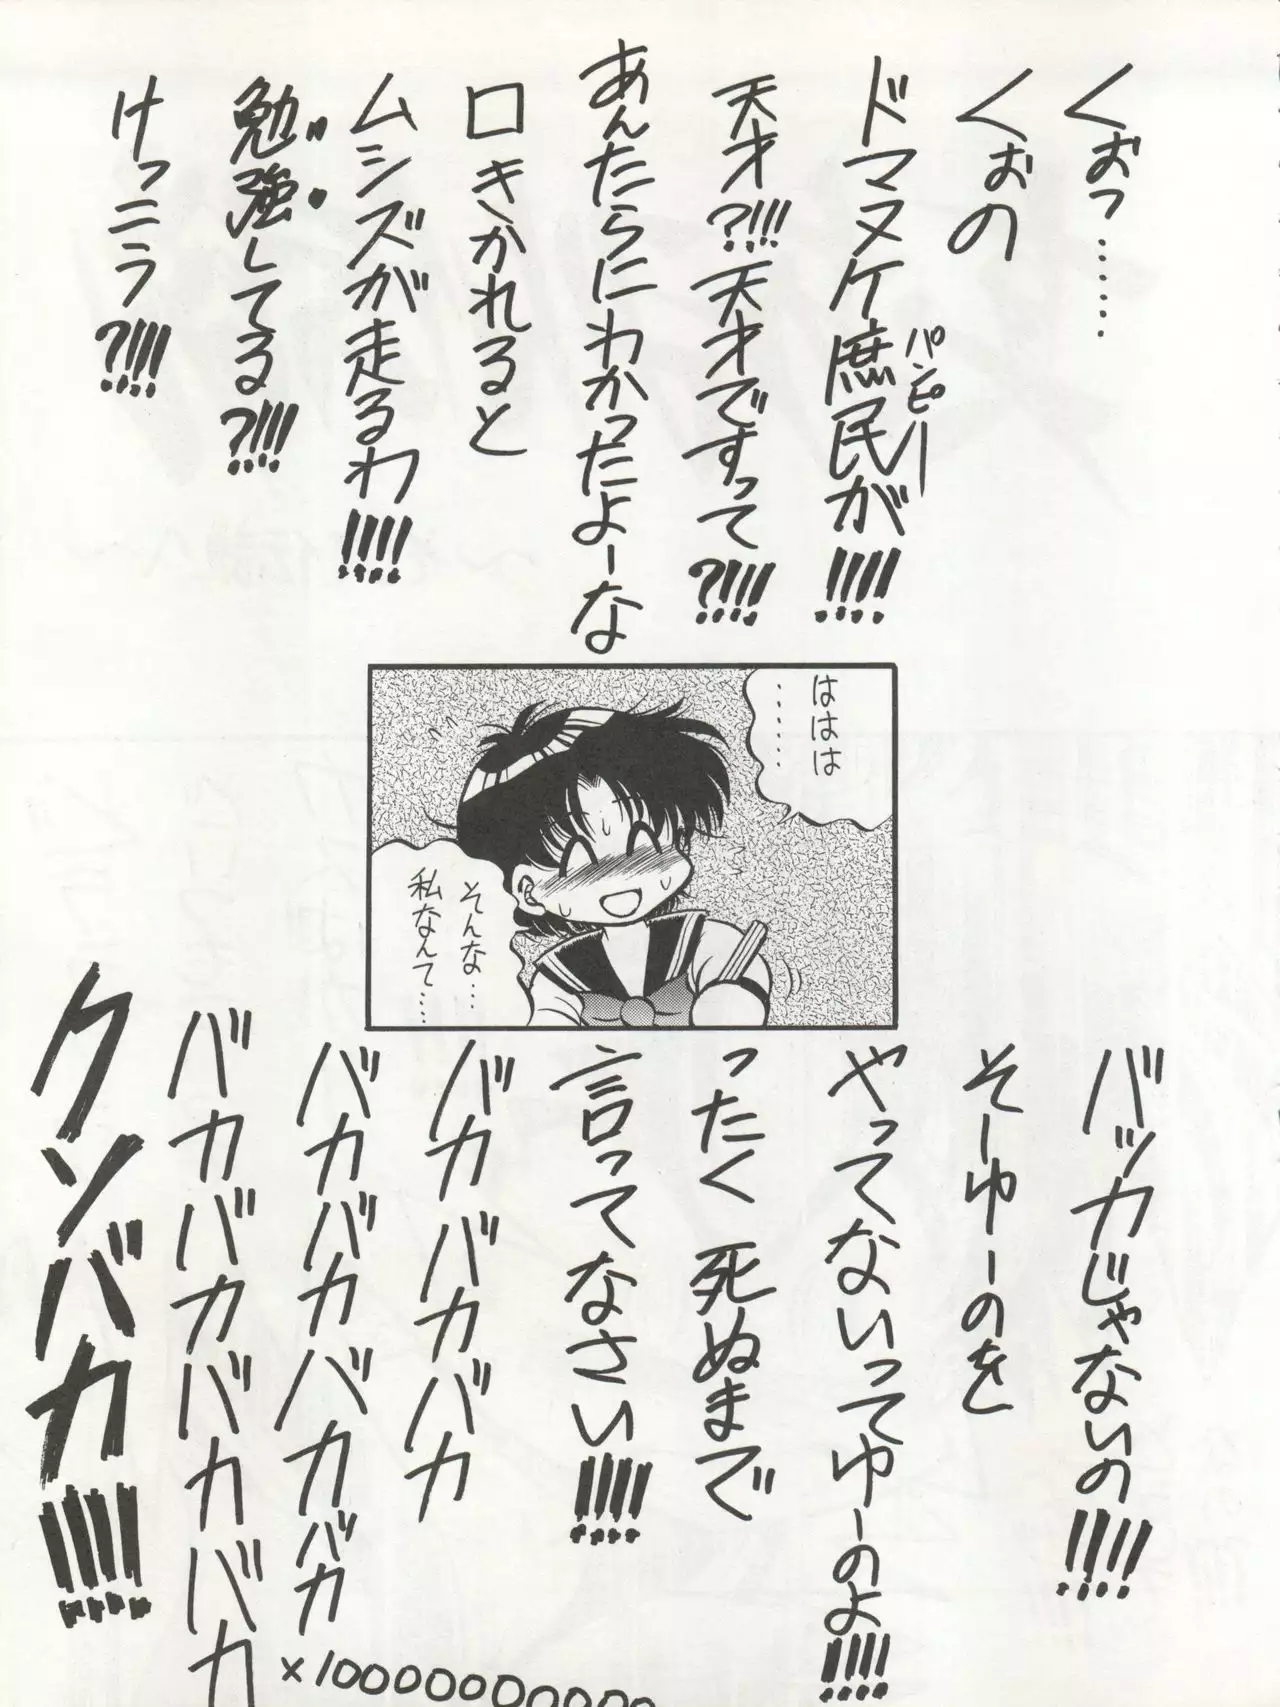 くぉっ……
くぉの
ドマヌケ庶民が!!!!
パンピー
天才?!!! 天才ですって?!!!!
あんたらにわかったよーな
口きかれると
ムシズが走るわ!!!!
勉強してる?!!!!
けっニラ?!!!!
ははは
……
そんな…
私なんて…
バッカじゃないの!!!!
そーゆーのを
やってないってゆーのよ!!!!
ったく死ぬまで
言ってなさい!!!!
バカバカバカ
バカバカバカバカ
バカバカバカバカ
×1000000000
クソバカ!!!!!